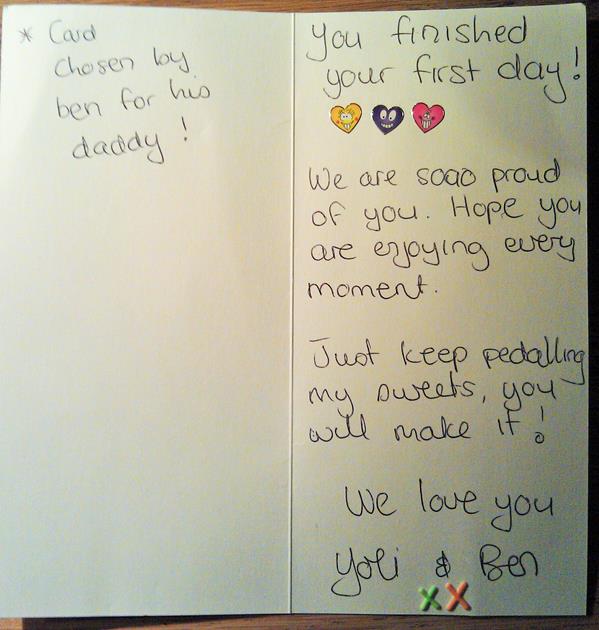 * Card
chosen by
ben for his
daddy!
You finished
your first day!
We are sooo proud
of you. Hope you
are enjoying every
moment.
Just keep pedalling
my sweets, you
will make it!
We love you
Yoli & Ben
xX